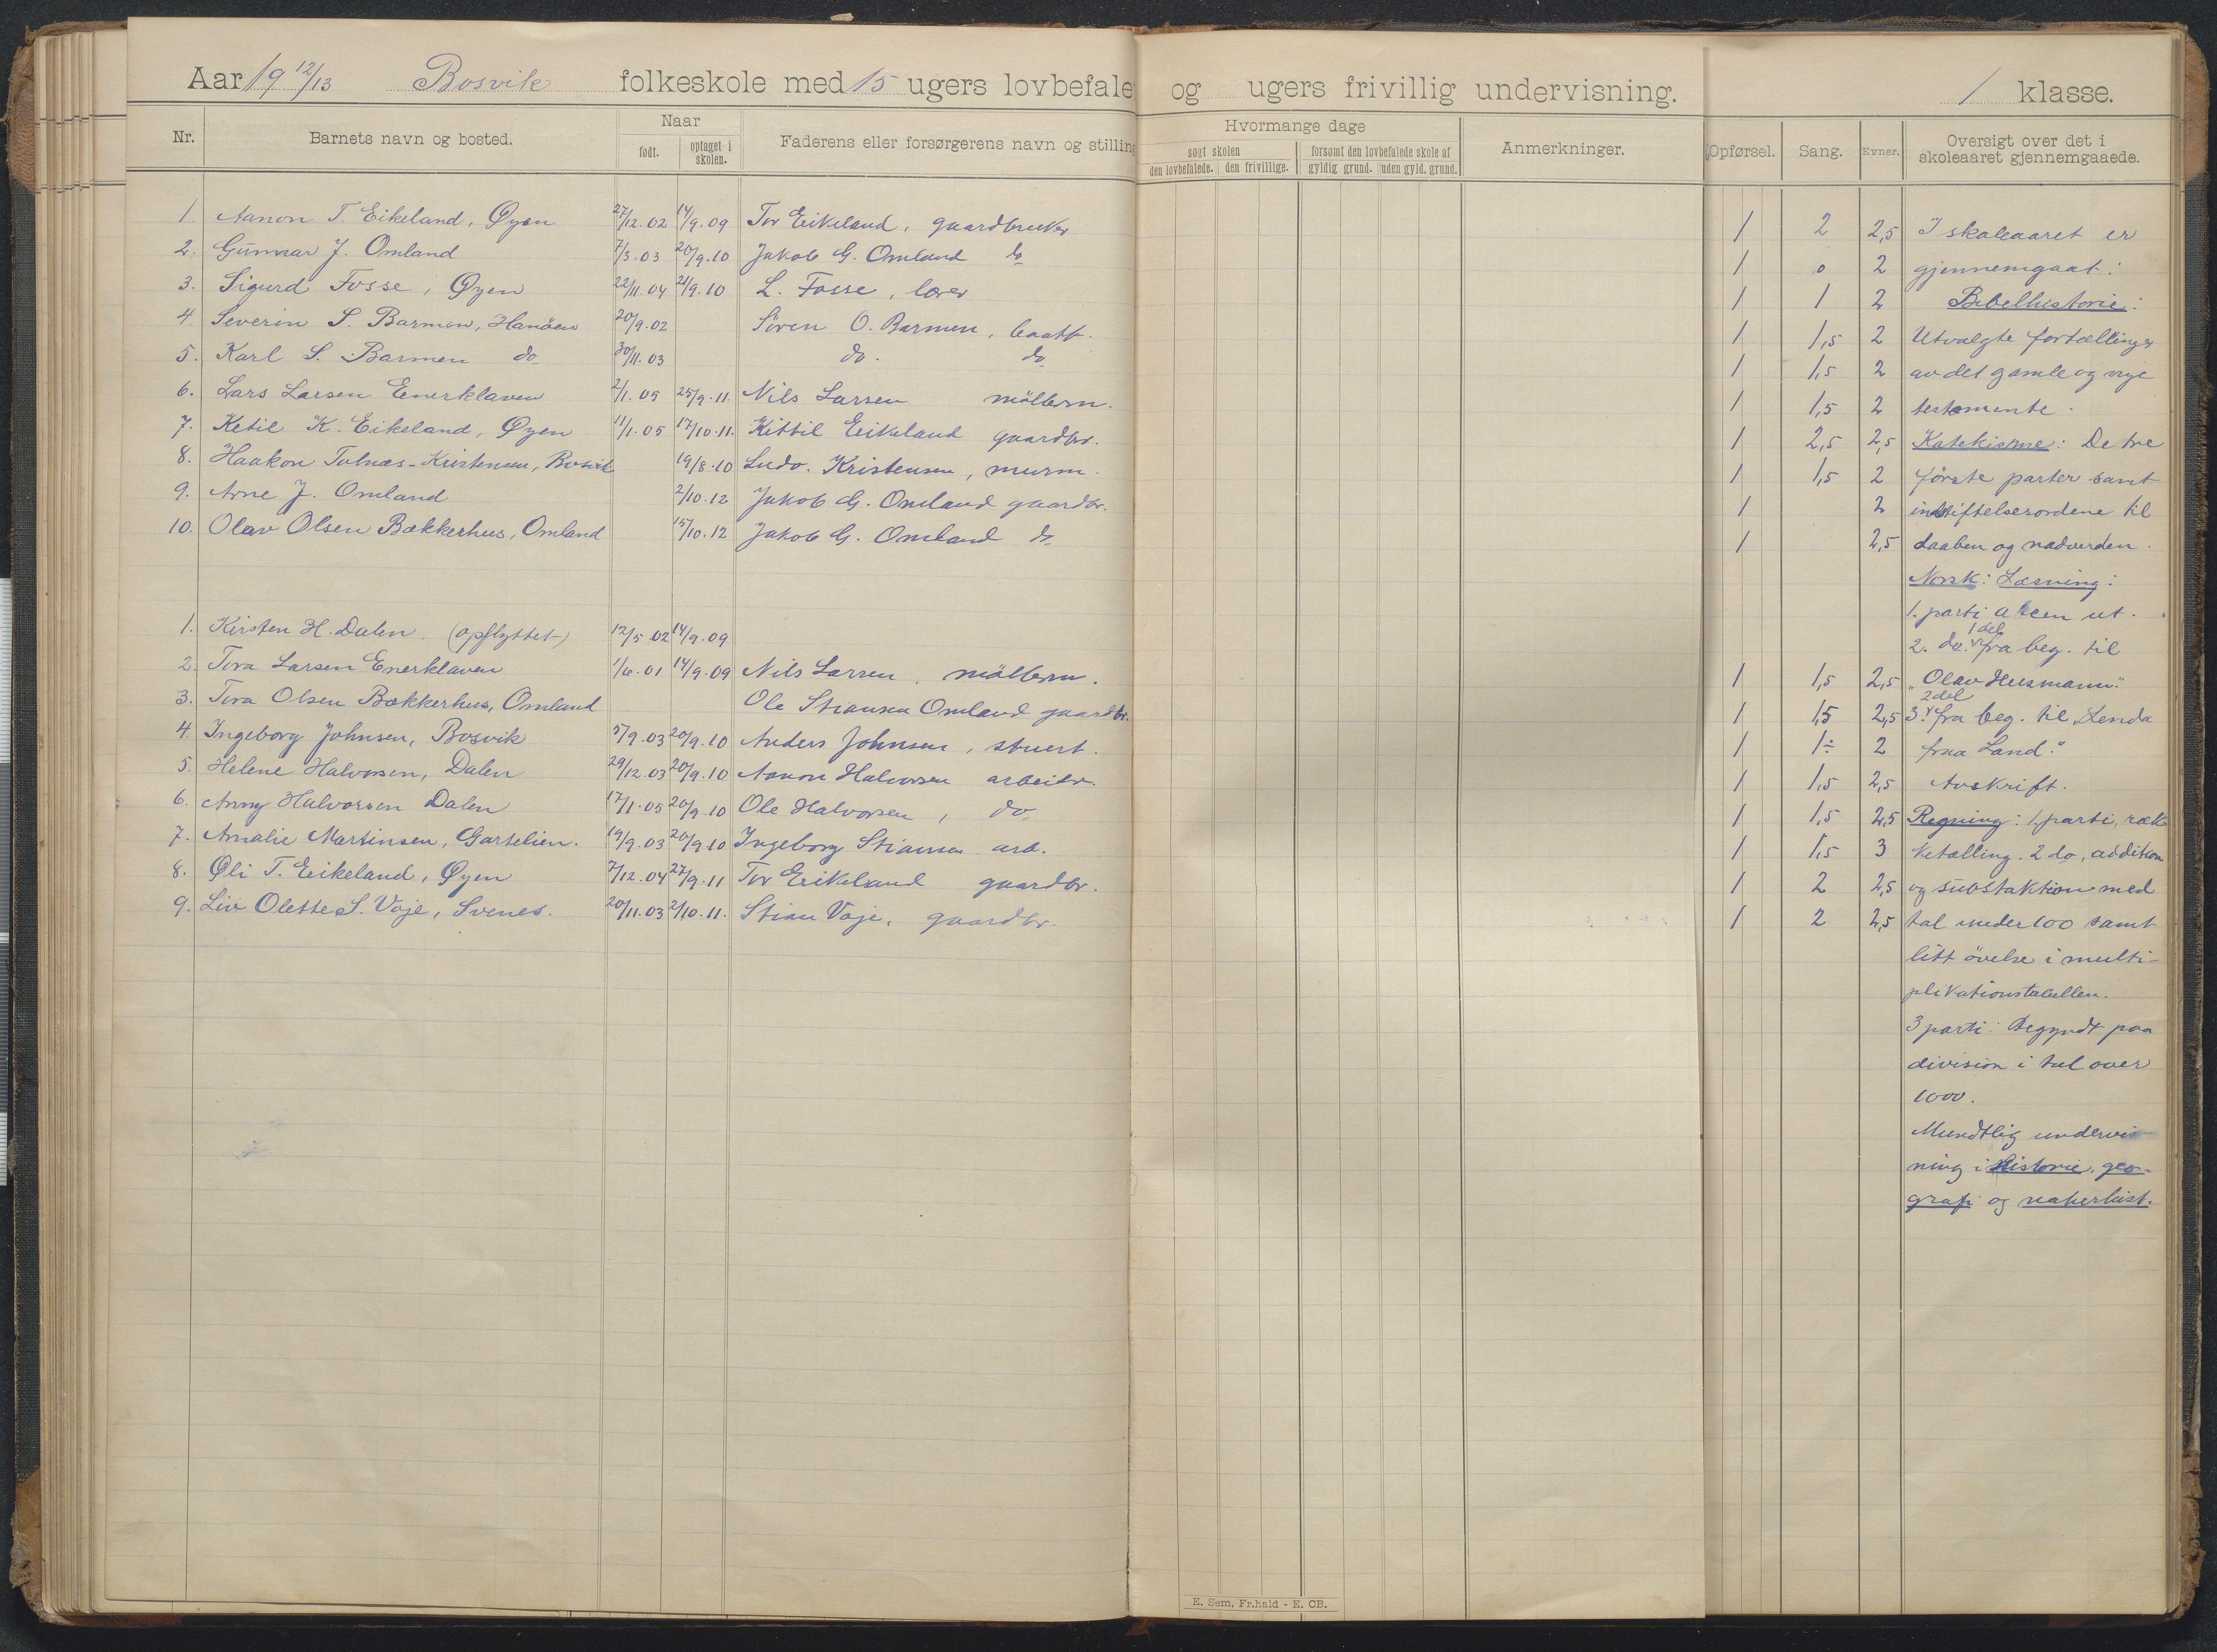 Aar 19 12/13 Bosvik folkeskole med 15 ugers lovbefale og ugers frivillig undervisning. 1 klasse.
Nr. Barnets navn og bosted. Naar født. optaget i skolen. Faderens eller forsørgerens navn og stilling
Hvormange dage
søgt skolen
den lovbefalede. den frivillige.
forsømt den lovbefalede skole af
gyldig grund. uden gyld. grund.
Anmerkninger.
Opførsel. Sang. Evner. Oversigt over det i skoleaaret gjennemgaaede.
1. Aanon T. Eikeland, Øyen 27/12.02 14/9.09 Tor Eikeland, gaardbruker
2. Gunnar J. Omland 7/3.03 20/9.10 Jakob G. Omland do
3. Sigurd Fosse, Øyen 22/11.04 21/9.10 L. Fosse, lærer
4. Severin S. Barmen, Hanöen 20/9.02 Sören O. Barmen,
5. Karl S. Barmen do 30/11.03 do. do
6. Lars Larsen Enerklaven 2/1.05 25/9.11. Nils Larsen möllern.
7. Ketil K. Eikeland, Øyen 11/1.05 17/10.11. Kittil Eikeland gaardbr.
8. Haakon Tolnæs-Kristensen, Bosvik 19/8.10 Ludv. Kristensen, murm.
9. Arne J. Omland 2/10.12 Jakob G. Omland gaardbr.
10. Olav Olsen Bækkerhus, Omland 15/10.12 Jakob G. Omland do
1. Kirsten H. Dalen. (opflyttet) 12/5.02 14/9.09
2. Tora Larsen Enerklaven 1/6.01 14/9.09 Nils Larsen, möllern.
3. Tora Olsen Bækkerhus, Omland Ole Stiansen Omland gaardbr.
4. Ingeborg Johnsen, Bosvik 5/9.03 20/9.10 Anders Johnsen, stuert.
5. Helene Halvorsen, Dalen 29/12.03 20/9.10 Aanon Halvorsen arbeidr.
6. Anny Halvorsen Dalen 17/1.05 20/9.10 Ole Halvorsen, do
7. Amalie Martinsen, Gartelien. 19/9.03 20/9.10 Ingeborg Stiansen arb.
8. Oli T. Eikeland, Øyen 7/12.04 27/9.11 Tor Eikeland gaardbr.
9. Liv Olette S. Voje, Svenes. 20/11.03 2/10.11. Stian Voje, gaardbr.
1 2 2,5 I skoleaaret er
1 0 2 gjennemgaat:
1 1 2 Bibelhistorie:
1 1,5 2 Utvalgte fortællinger
1 1,5 2 av det gamle og nye
1 1,5 2 testamente.
1 2,5 2,5 Katekisme: De tre
1 1,5 2 förste parter samt
1 2 indstiftelsesordene til
1 2,5 daaben og nadverden.
Norsk: Læsning:
1. parti abcen ut.
1 del
2. do. fra beg. til
1 1,5 2,5 "Olav Husmann".
2 del
1 1,5 2,5 3. fra beg. til "Lenda
1 1÷ 2 fraa Land."
1 1,5 2,5 Avskrift.
1 1,5 2,5 Regning: 1 parti, ræk
1 1,5 3 ketælling. 2 do, addition
1 2 2,5 og substaktion med
1 2 2,5 tal under 100 samt
litt övelse i multi-
plikationstabellen.
3 parti: Begyndt paa
division i tal over
1000.
Mundtlig undervis-
ning i Historie, geo-
grafi og naturhist.
E. Sem, Fr.hald - E. CB.